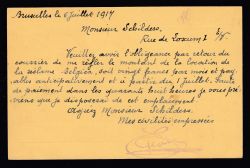 Bruxelles le 6 Juillet 1917
Monsieur Schilders,
Rue de Loxum 1 E/V.
Veuillez avoir l'obligeance par retour du
courrier de me régler le montant de la location de
la réclame Belgica, soit vingt francs par mois et pay-
ables anticipativement et à partir du 1 Juillet. Faute
de paiement dans les quarante huit heures je vous pré-
viens que je disposerai de cet emplacement
Agréez Monsieur Schilders.
Mes civilités empressées